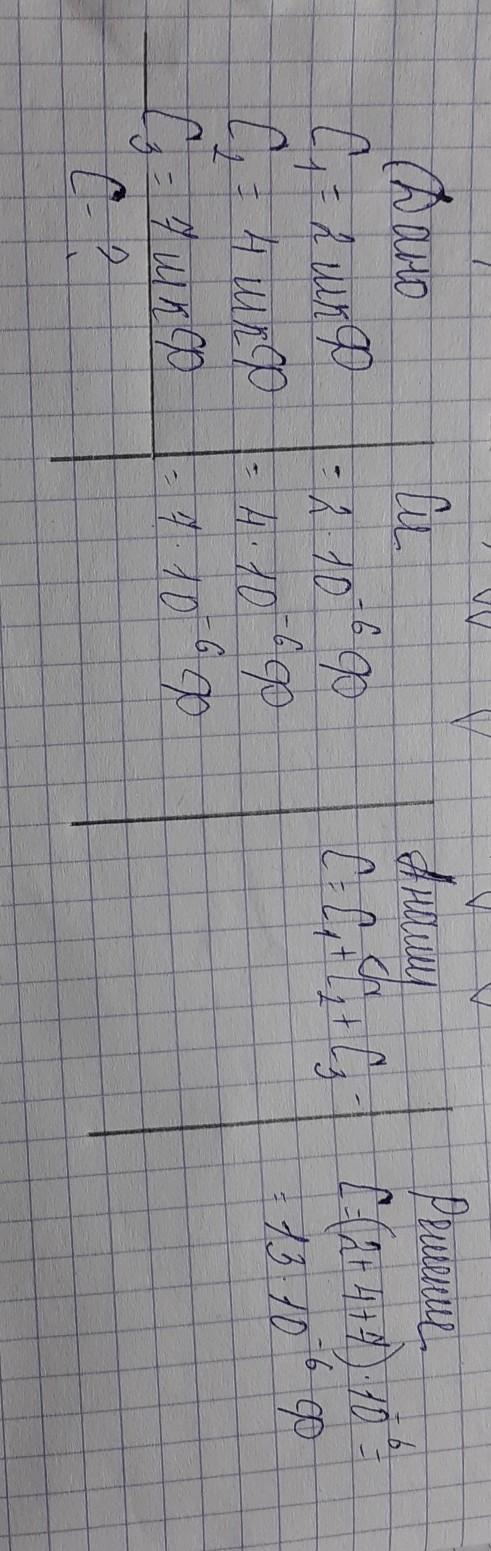 Дано
C₁ = 2 мкф
C₂ = 4 мкф
C₃ = 7 мкф
C - ?
Си
= 2 · 10⁻⁶ ф
= 4 · 10⁻⁶ ф
= 7 · 10⁻⁶ ф
Анализ
C = C₁ + C₂ + C₃
Решение
C = (2 + 4 + 7) · 10⁻⁶ =
= 13 · 10⁻⁶ ф